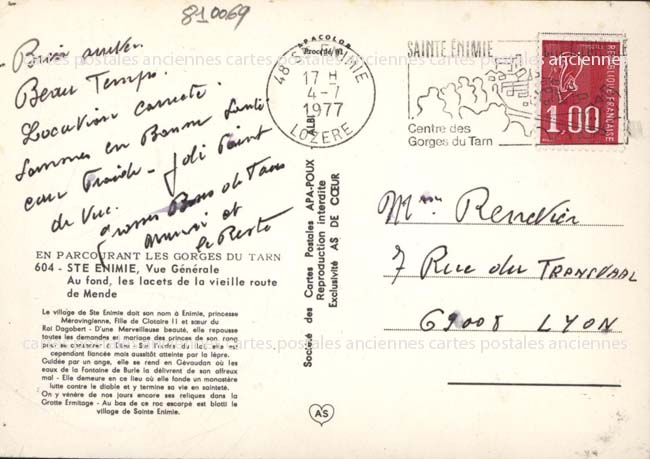 810069
Bien arrivés.
Beau Temps.
Location correcte.
Sommes en Bonne Santé
eau Froide - Joli Point
de Vue.
Grosses Bises de Tous
Mumri et
le Reste
EN PARCOURANT LES GORGES DU TARN
604 - STE ENIMIE, Vue Générale
Au fond, les lacets de la vieille route
de Mende
Le village de Ste Enimie doit son nom à Enimie, princesse
Mérovingienne, Fille de Clotaire II et sœur du
Roi Dagobert - D'une Merveilleuse beauté, elle repousse
toutes les demandes en mariage des princes de son rang
cependant fiancée mais aussitôt atteinte par la lèpre.
Guidée par un ange, elle se rend en Gévaudan où les
eaux de la Fontaine de Burle la délivrent de son affreux
mal - Elle demeure en ce lieu où elle fonde un monastère
lutte contre le diable et y termine sa vie en sainteté.
On y vénère de nos jours encore ses reliques dans la
Grotte Ermitage - Au bas de ce roc escarpé est blotti le
village de Sainte Enimie.
APACOLOR
Procédé
ALBI
Société des Cartes Postales APA-POUX
Reproduction interdite
Exclusivité AS DE CŒUR
AS
48 STE ENIMIE
17 H
4-7
1977
LOZERE
SAINTE ÉNIMIE
Centre des
Gorges du Tarn
REPUBLIQUE FRANÇAISE
1,00
Mme Rendier
7 Rue du TRANSVAAL
69008 LYON
cartes postales anciennes cartes postales anciennes